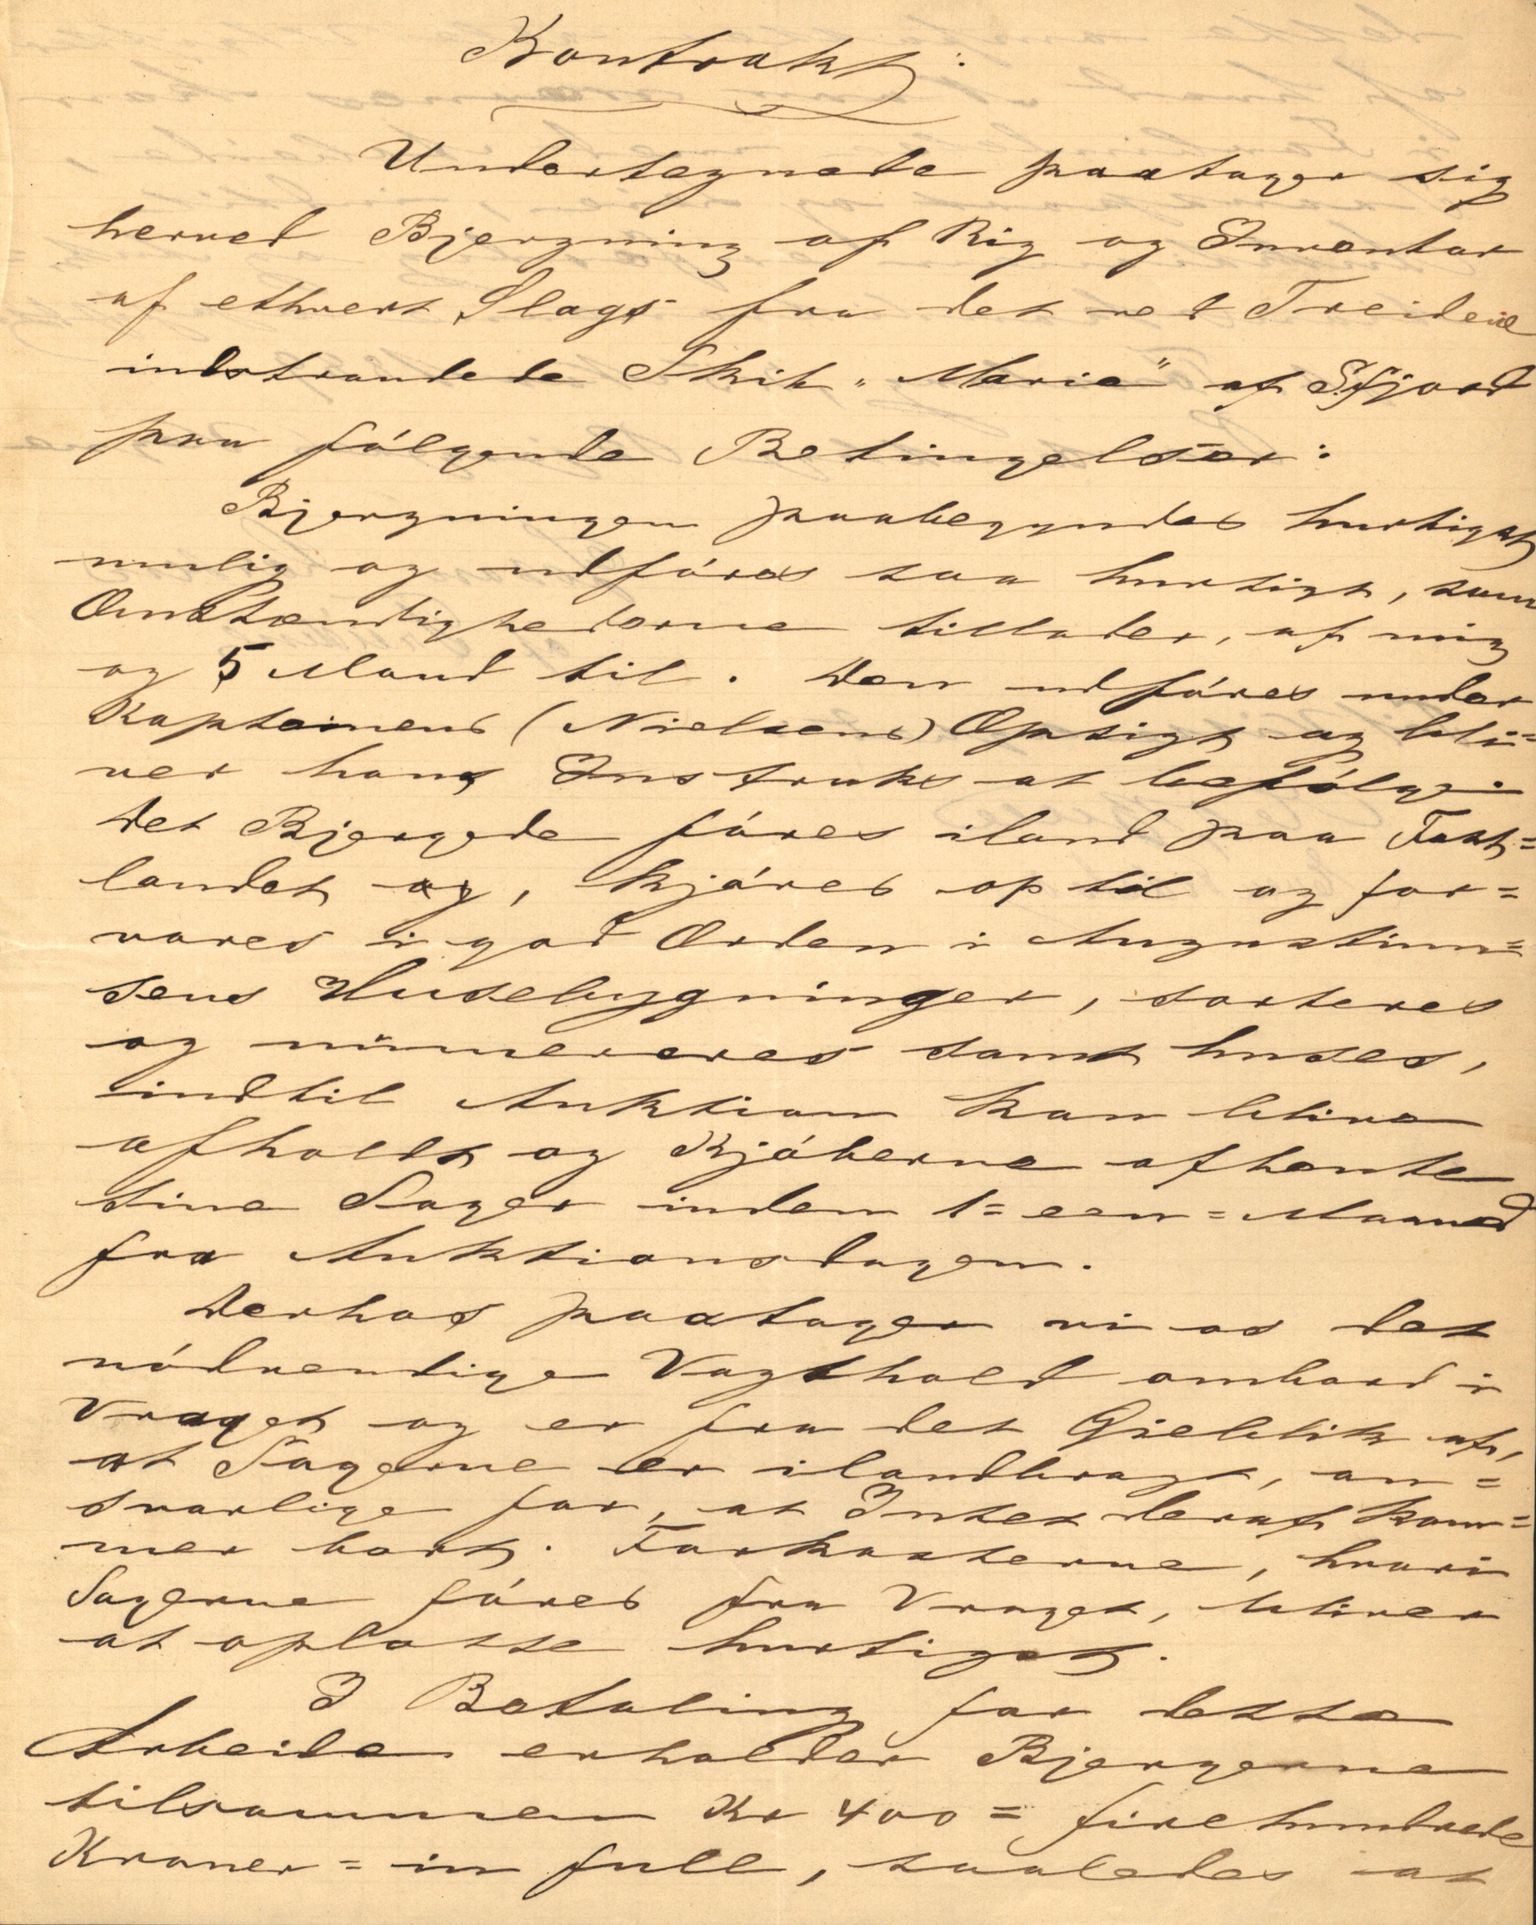 Kontrakt:
Undertegnede paatager sig
herved Bjergning af Rig og Inventar
af ethvert Slags fra det ved Treidene
indstrandede Skib "Maria" af Sfjord
paa følgende Betingelser:
Bjergningen paabegyndes hurtigst
mulig og udføres saa hurtigt, som
Omstændighederne tillader, af mig
og 5 Mand til. Den udføres under
Kapteinens (Nielsens) Opsigt og bli=
ver hans Instruks at befølge.
Det Bjergede føres iland paa Fast=
landet og, kjøres op til og for=
vares i god Orden i Augustin=
sens Husebygninger, sorteres
og nümereres samt huses,
indtil Auktion kan blive
afholdt og Kjøberne afhente
sine Sager inden 1= een = Maaned
fra Auktionsdagen.
Derhos paatager vi os det
nødvendige Vagthold ombord i
Vraget og er fra det Øieblik af,
at Sagerne er ilandbragt, an=
svarlige for, at Intet deraf kom=
mer bort. Farkosterne, hvori
Sagerne føres fra Vraget, bliver
at oplosse hurtigst.
I Betaling for dette
Arbeide erholder Bjergerne
tilsammen Kr 400 = firehundrede
Kroner = in full, saaledes at